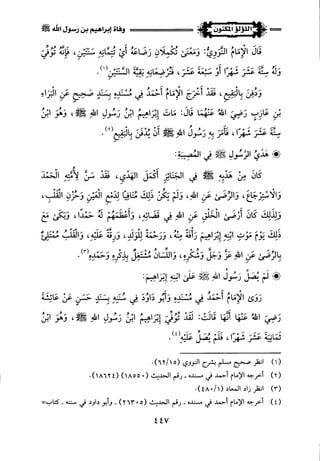 اللؤلؤ المكنون
وفاة إبراهيم بن رسول الله ﷺ
قال الإمام النووي: ومعناه ويُكملان رضاعه، أي يتمه سنتين، فإنه توفي
وله ستة عشر شهرا أو سبعة عشر، فترضعانه بقية السنتين(١).
ودفن بالبقيع، أخرج الإمام أحمد في مسنده بسند صحيح عن البراء
بن عازب رضي الله عنهما قال: مات إبراهيم ابن رسول الله ﷺ، وهو ابن
ستة عشر شهرا، فأمر به رسول الله ﷺ أن يدفن في البقيع(٢).
هدي الرسول ﷺ في المصيبة:
وكان من هديه ﷺ في الجنائز أكمل الهدي، فقد سن لأمته الحمد
والاسترجاع، والرضى عن الله، ولم يكن ذلك منافيا لدمع العين وحزن القلب،
ولذلك كان أرضى الخلق عن الله في قضائه، وأعظمهم له حمدا، وبكى مع
ذلك يوم موت ابنه إبراهيم رأفة منه، ورحمة للولد، ورقة عليه، والقلب ممتلئ
بالرضى عن الله عز وجل وشكره، واللسان مشتغل بذكره وحمده(٣).
لم يصل رسول الله ﷺ على ابنه إبراهيم:
روى الإمام أحمد في مسنده وأبو داود في سننه بسند حسن عن عائشة
رضي الله عنها أنها قالت: لقد توفي إبراهيم ابن رسول الله ﷺ، وهو ابن
ثمانية عشر شهرا، فلم يصل عليه(٤).
(١) انظر صحيح مسلم بشرح النووي (٦٢/١٥).
(٢) أخرجه الإمام أحمد في مسنده - رقم الحديث (١٨٥٥٠) (١٨٦٢٤).
(٣) انظر زاد المعاد (٤٨٠/١).
(٤) أخرجه الإمام أحمد في مسنده - رقم الحديث (٢٦٣٠٥) - وأبو داود في سننه - كتاب=
٤٤٧